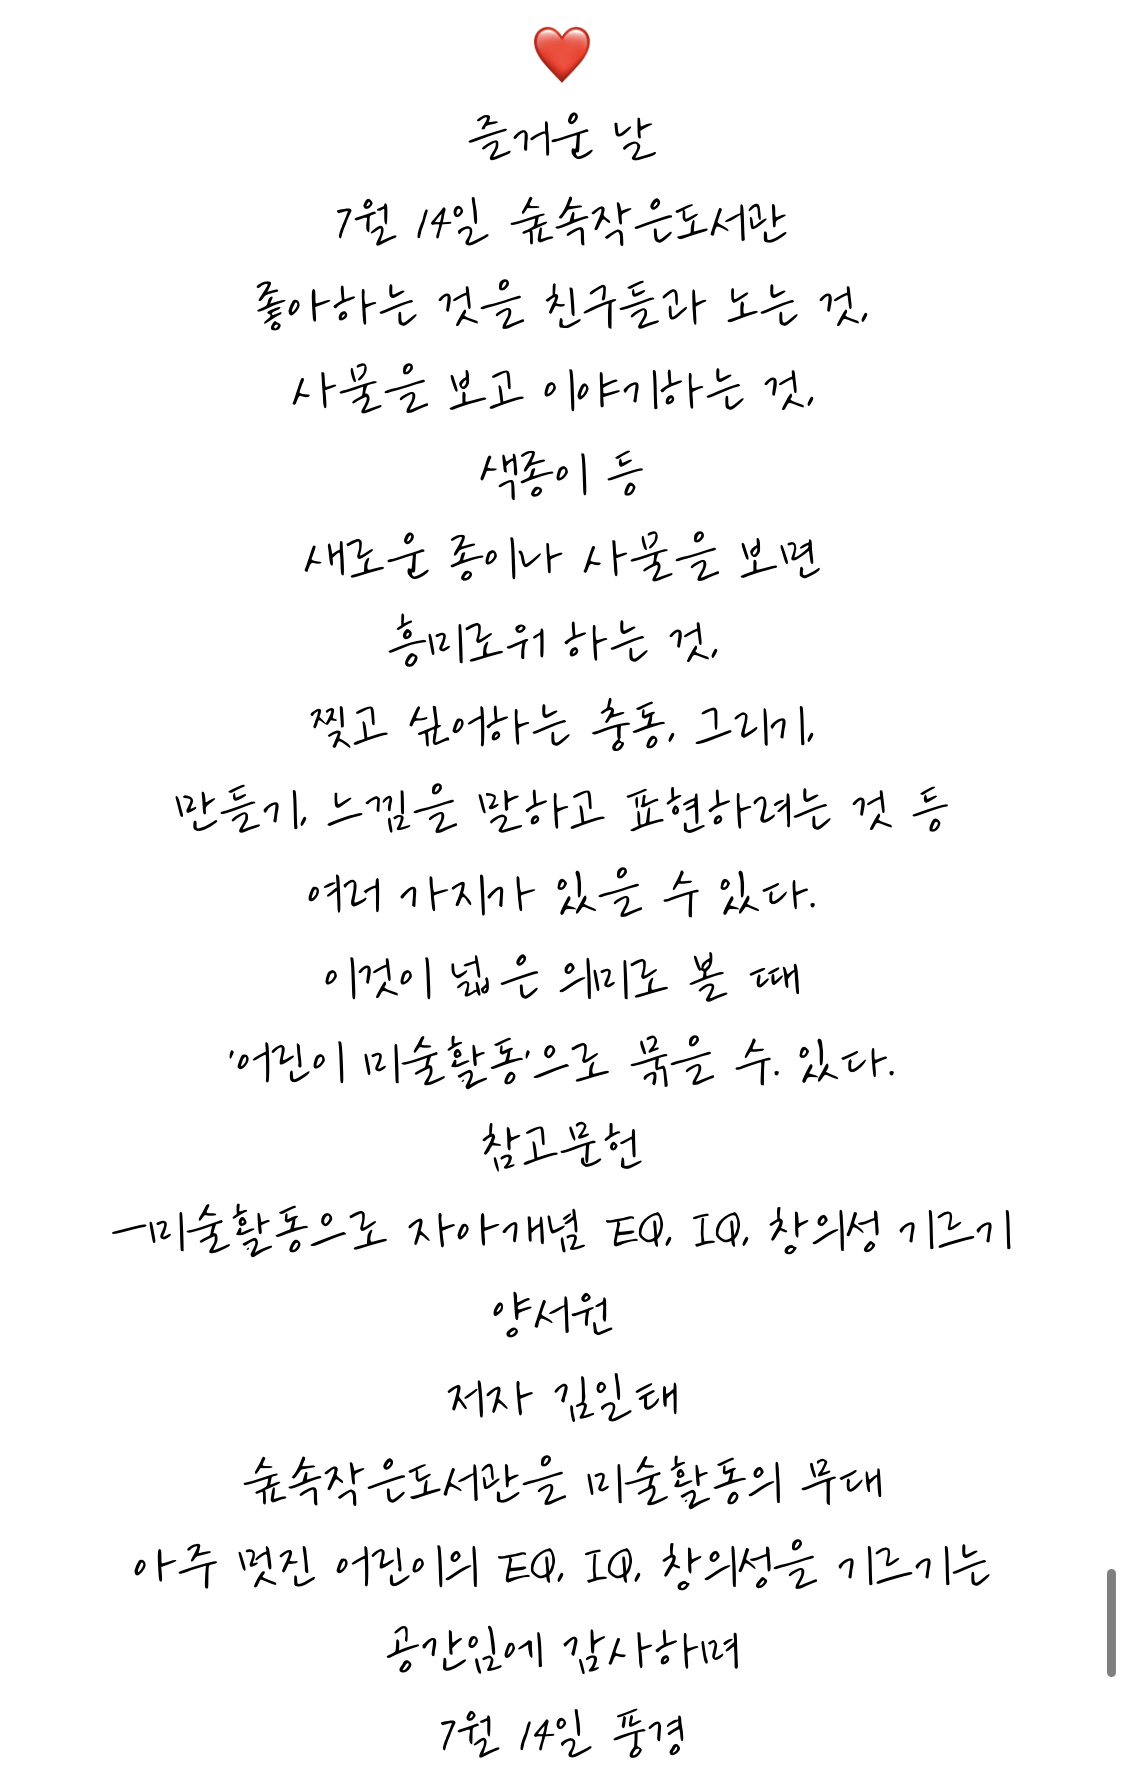 ❤️
즐거운 날
7월 14일 숲속작은도서관
좋아하는 것을 친구들과 노는 것,
사물을 보고 이야기하는 것,
색종이 등
새로운 종이나 사물을 보면
흥미로워 하는 것,
찢고 싶어하는 충동, 그리기,
만들기, 느낌을 말하고 표현하려는 것 등
여러 가지가 있을 수 있다.
이것이 넓은 의미로 볼 때
'어린이 미술활동'으로 묶을 수. 있다.
참고문헌
ㅡ미술활동으로 자아개념 EQ, IQ, 창의성 기르기
양서원
저자 김일태
숲속작은도서관을 미술활동의 무대
아주 멋진 어린이의 EQ, IQ, 창의성을 기르기는
공간임에 감사하며
7월 14일 풍경